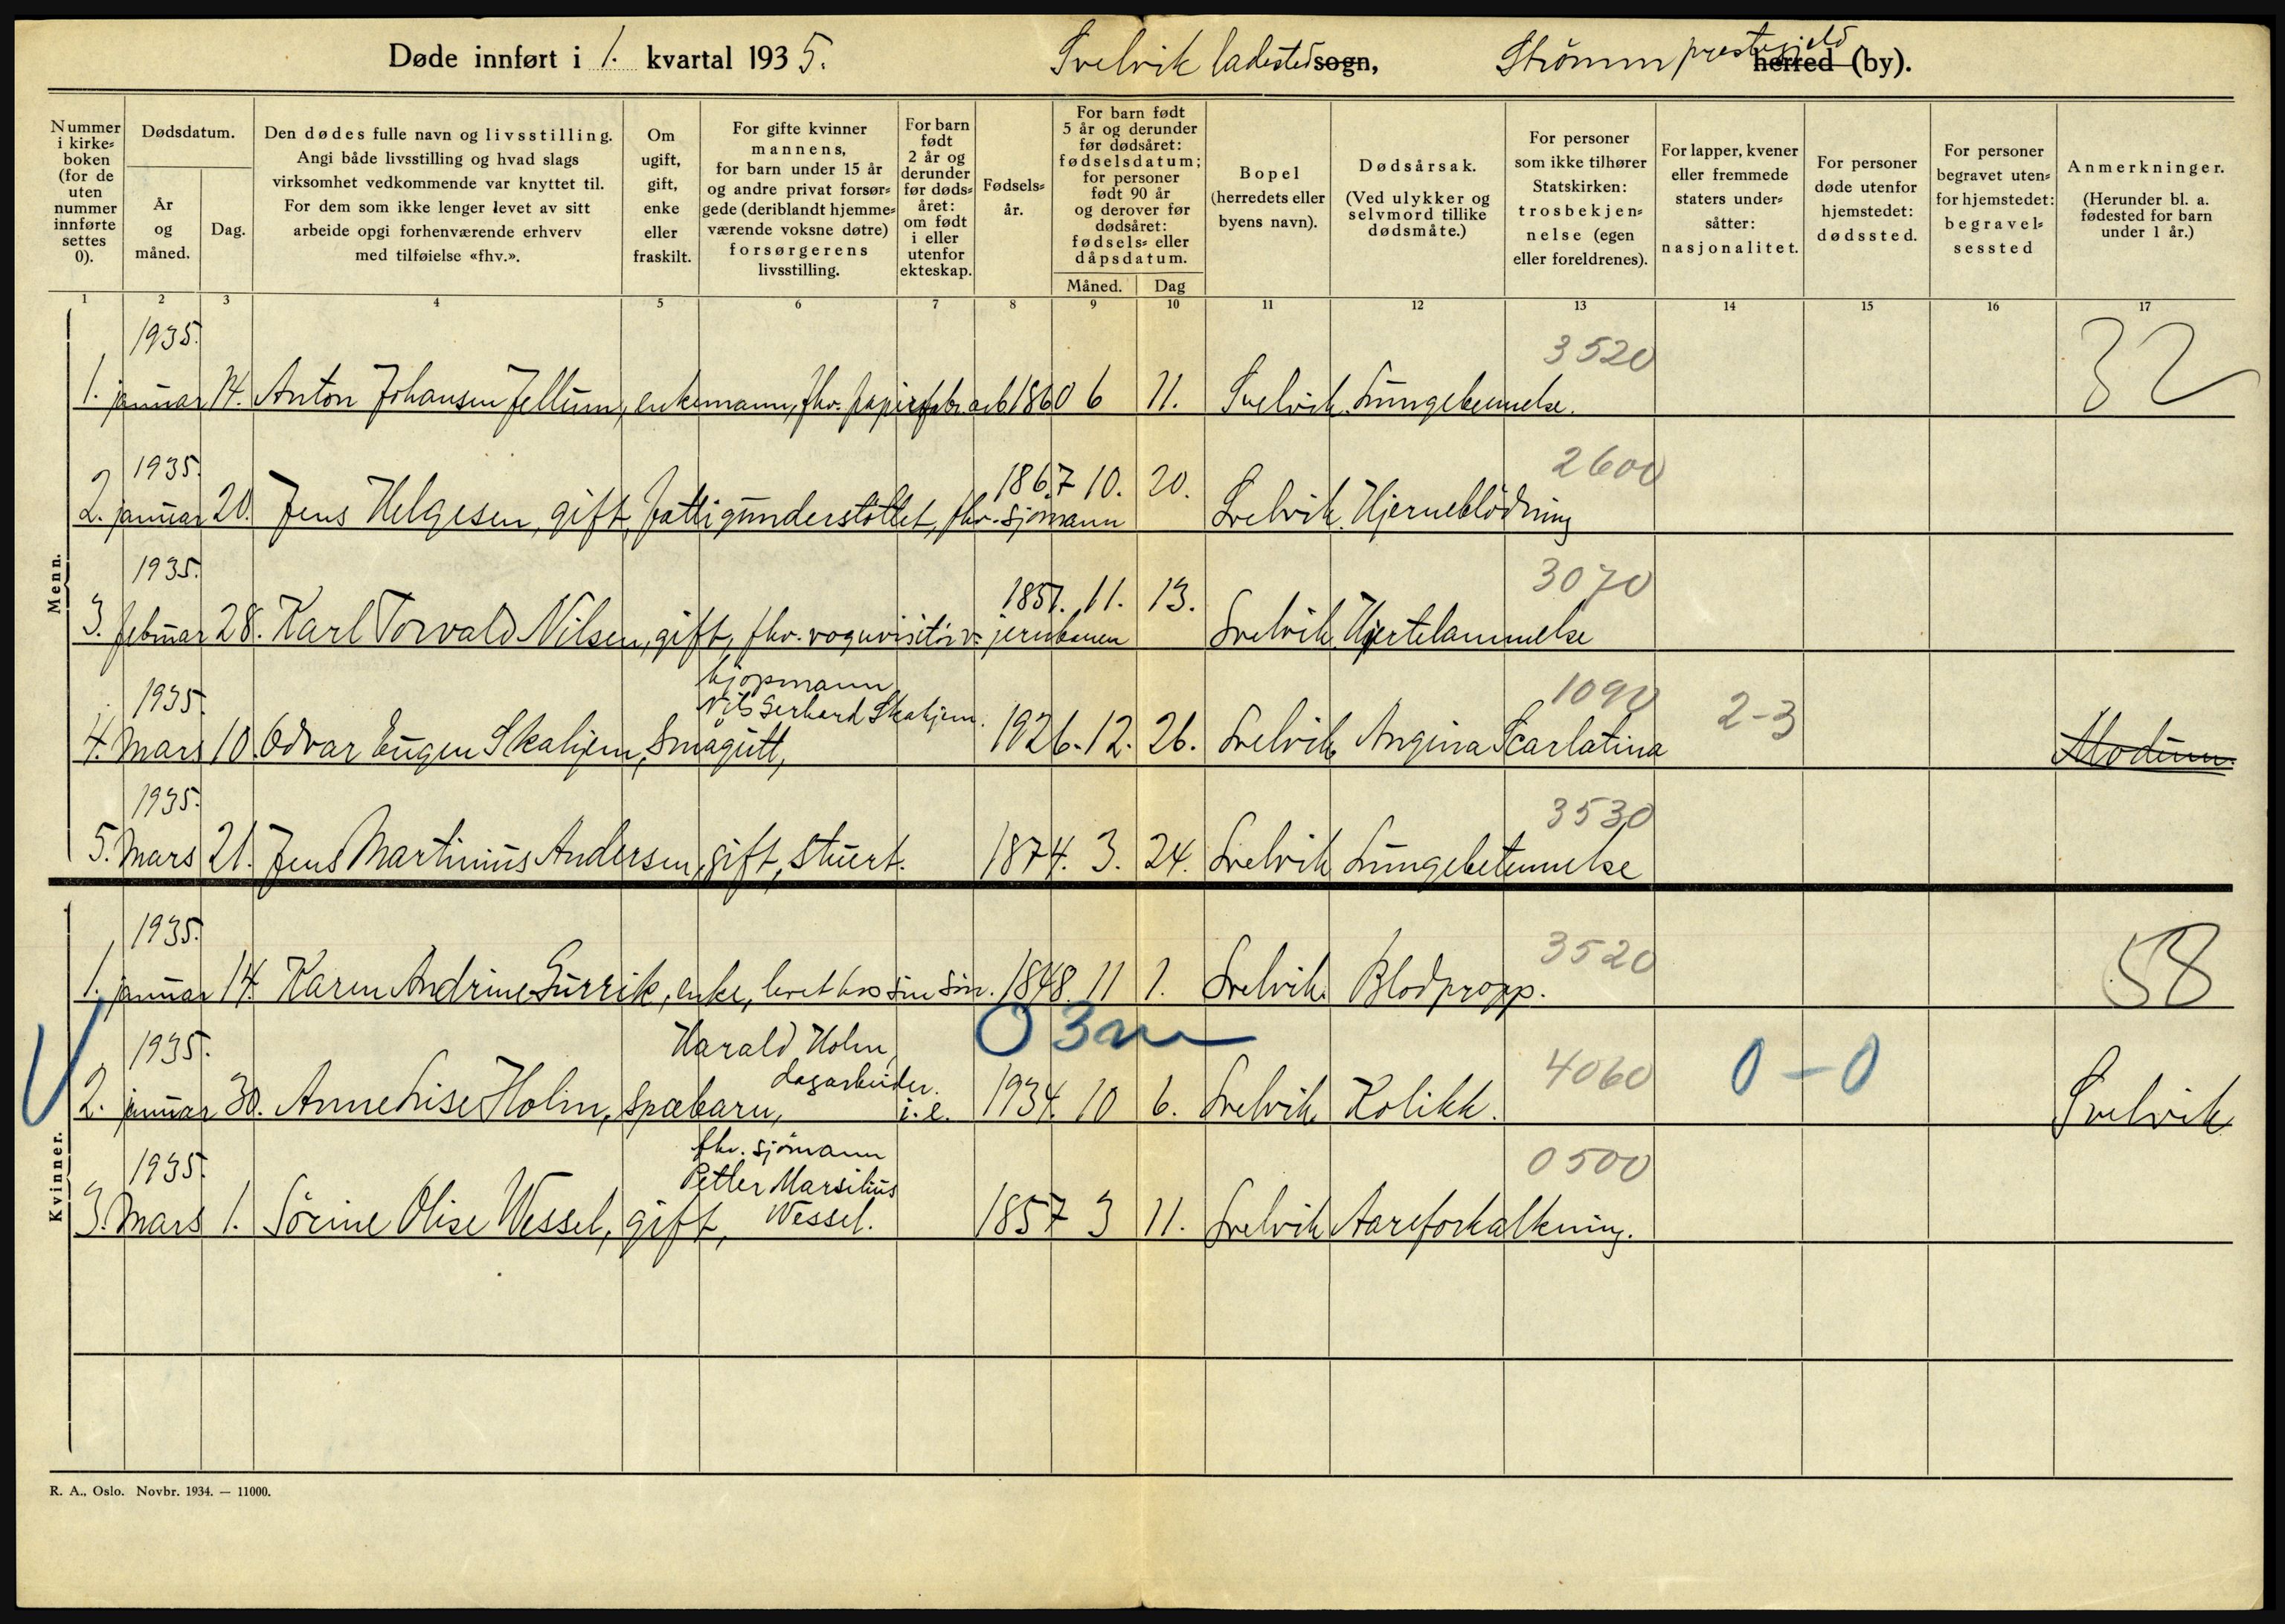 Døde innført i 1. kvartal 1935. Svelvik ladested sogn, Strømm prestegjeld herred (by).
Nummer i kirke= boken (for de uten nummer innførte settes 0).
Dødsdatum.
År og måned.
Dag.
Den dødes fulle navn og livsstilling.
Angi både livsstilling og hvad slags
virksomhet vedkommende var knyttet til.
For dem som ikke lenger levet av sitt
arbeide opgi forhenværende erhverv
med tilføielse «fhv.».
Om ugift, gift, enke eller fraskilt.
For gifte kvinner
mannens,
for barn under 15 år
og andre privat forsør=
gede (deriblandt hjemme=
værende voksne døtre)
forsørgerens
livsstilling.
For barn født 2 år og derunder før døds= året: om født i eller utenfor ekteskap.
Fødsels= år.
For barn født
5 år og derunder
før dødsåret:
fødselsdatum;
for personer
født 90 år
og derover før
dødsåret:
fødsels= eller
dåpsdatum.
Måned. Dag
Bopel
(herredets eller
byens navn).
Dødsårsak.
(Ved ulykker og
selvmord tillike
dødsmåte.)
For personer
som ikke tilhører
Statskirken:
trosbekjen=
nelse (egen
eller foreldrenes).
For lapper, kvener
eller fremmede
staters under=
såtter:
nasjonalitet.
For personer
døde utenfor
hjemstedet:
dødssted.
For personer
begravet uten=
for hjemstedet:
begravel=
sessted
Anmerkninger.
(Herunder bl. a.
fødested for barn
under 1 år.)
1 2 3 4 5 6 7 8 9 10 11 12 13 14 15 16 17
Menn.
1935. 3520 32
1. januar 14. Anton Johansen Jellum, enkemann, fhv. papirfabr.arb. 1860 6 11. Svelvik. Lungebetennelse.
1935. 1867 10. 20. 2600
2. januar 20. Jens Helgesen, gift, fattigunderstöttet, fhv. sjømann Svelvik. Hjerneblödning
1935. 1851. 11. 13. 3070
3. februar 28. Karl Torvald Nilsen, gift, fhv. vognvisitör v. jernbanen Svelvik. Hjertelammelse
1935. kjøpmann 1090 2-3
Nils Gerhard Skahjem.
4. Mars 10. Odvar Eugen Skahjem, Smågutt, 1926. 12. 26. Svelvik Angina Scarlatina Modum.
1935. 3530
5. Mars 21. Jens Martinius Andersen, gift, stuert. 1874. 3. 24. Svelvik Lungebetennelse
Kvinner.
1935. 3520 58
1. januar 14. Karen Andrine Surrik, enke, levet hos sin sön. 1848. 11 1. Svelvik. Blodpropp.
0 3m
1935. Harald Holm, 4060 0-0
dagarbeider.
2. januar 30. Anne Lise Holm, spebarn, i. e. 1934. 10 6. Svelvik Kolikk. Svelvik
1935. fhv. sjömann 0500
Petter Marsilius
3. Mars 1. Sörine Olise Wessel, gift, Wessel. 1857 3 11. Svelvik Aareforkalkning.
R. A., Oslo. Novbr. 1934. — 11000.